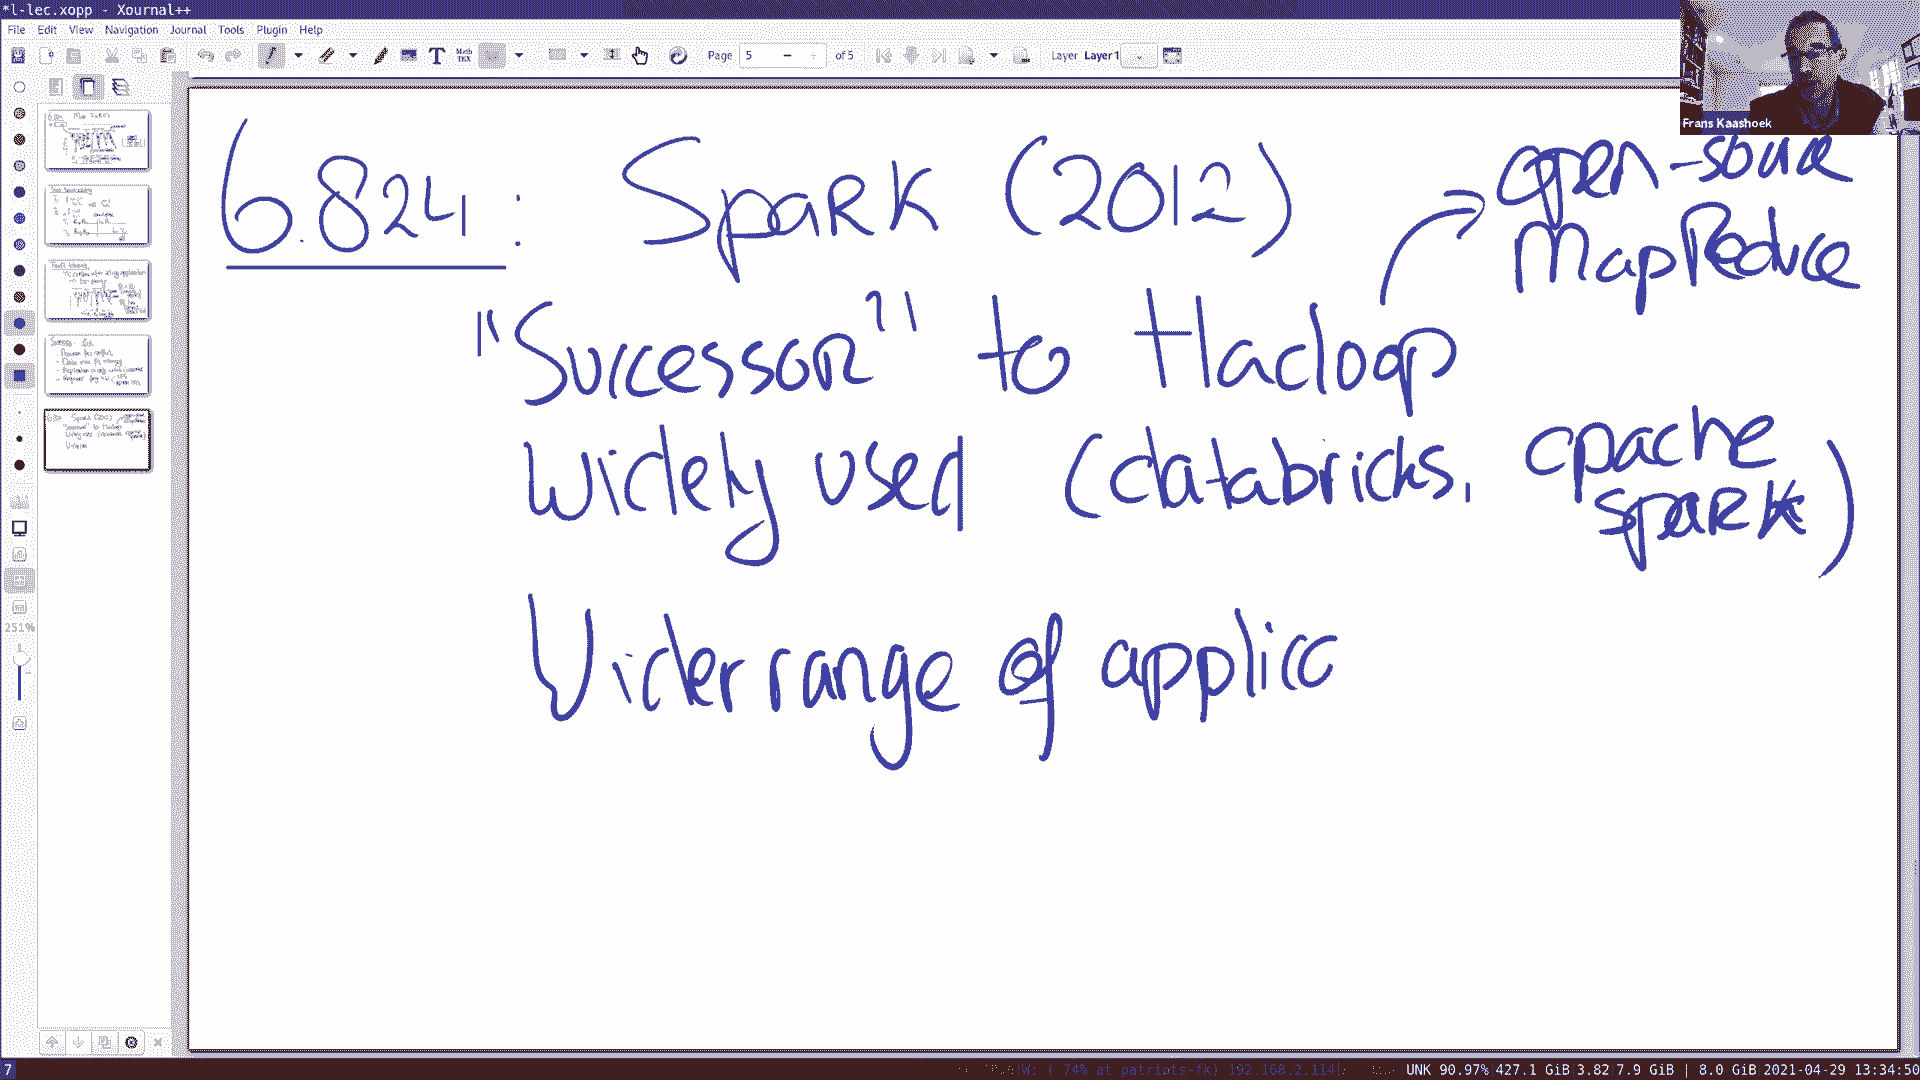 *l-lec.xopp - Xournal++
File Edit View Navigation Journal Tools Plugin Help
Page 5 of 5 Layer Layer1
Frans Kaashoek
6.824: Spark (2012)
open-source
MapReduce
"Successor" to Hadoop
Widely used (databricks, apache
spark)
Wider range of applica
251%
7
W: ( 74% at patriots-fk) 192.168.2.114 UNK 90.97% 427.1 GiB 3.82 7.9 GiB | 8.0 GiB 2021-04-29 13:34:50